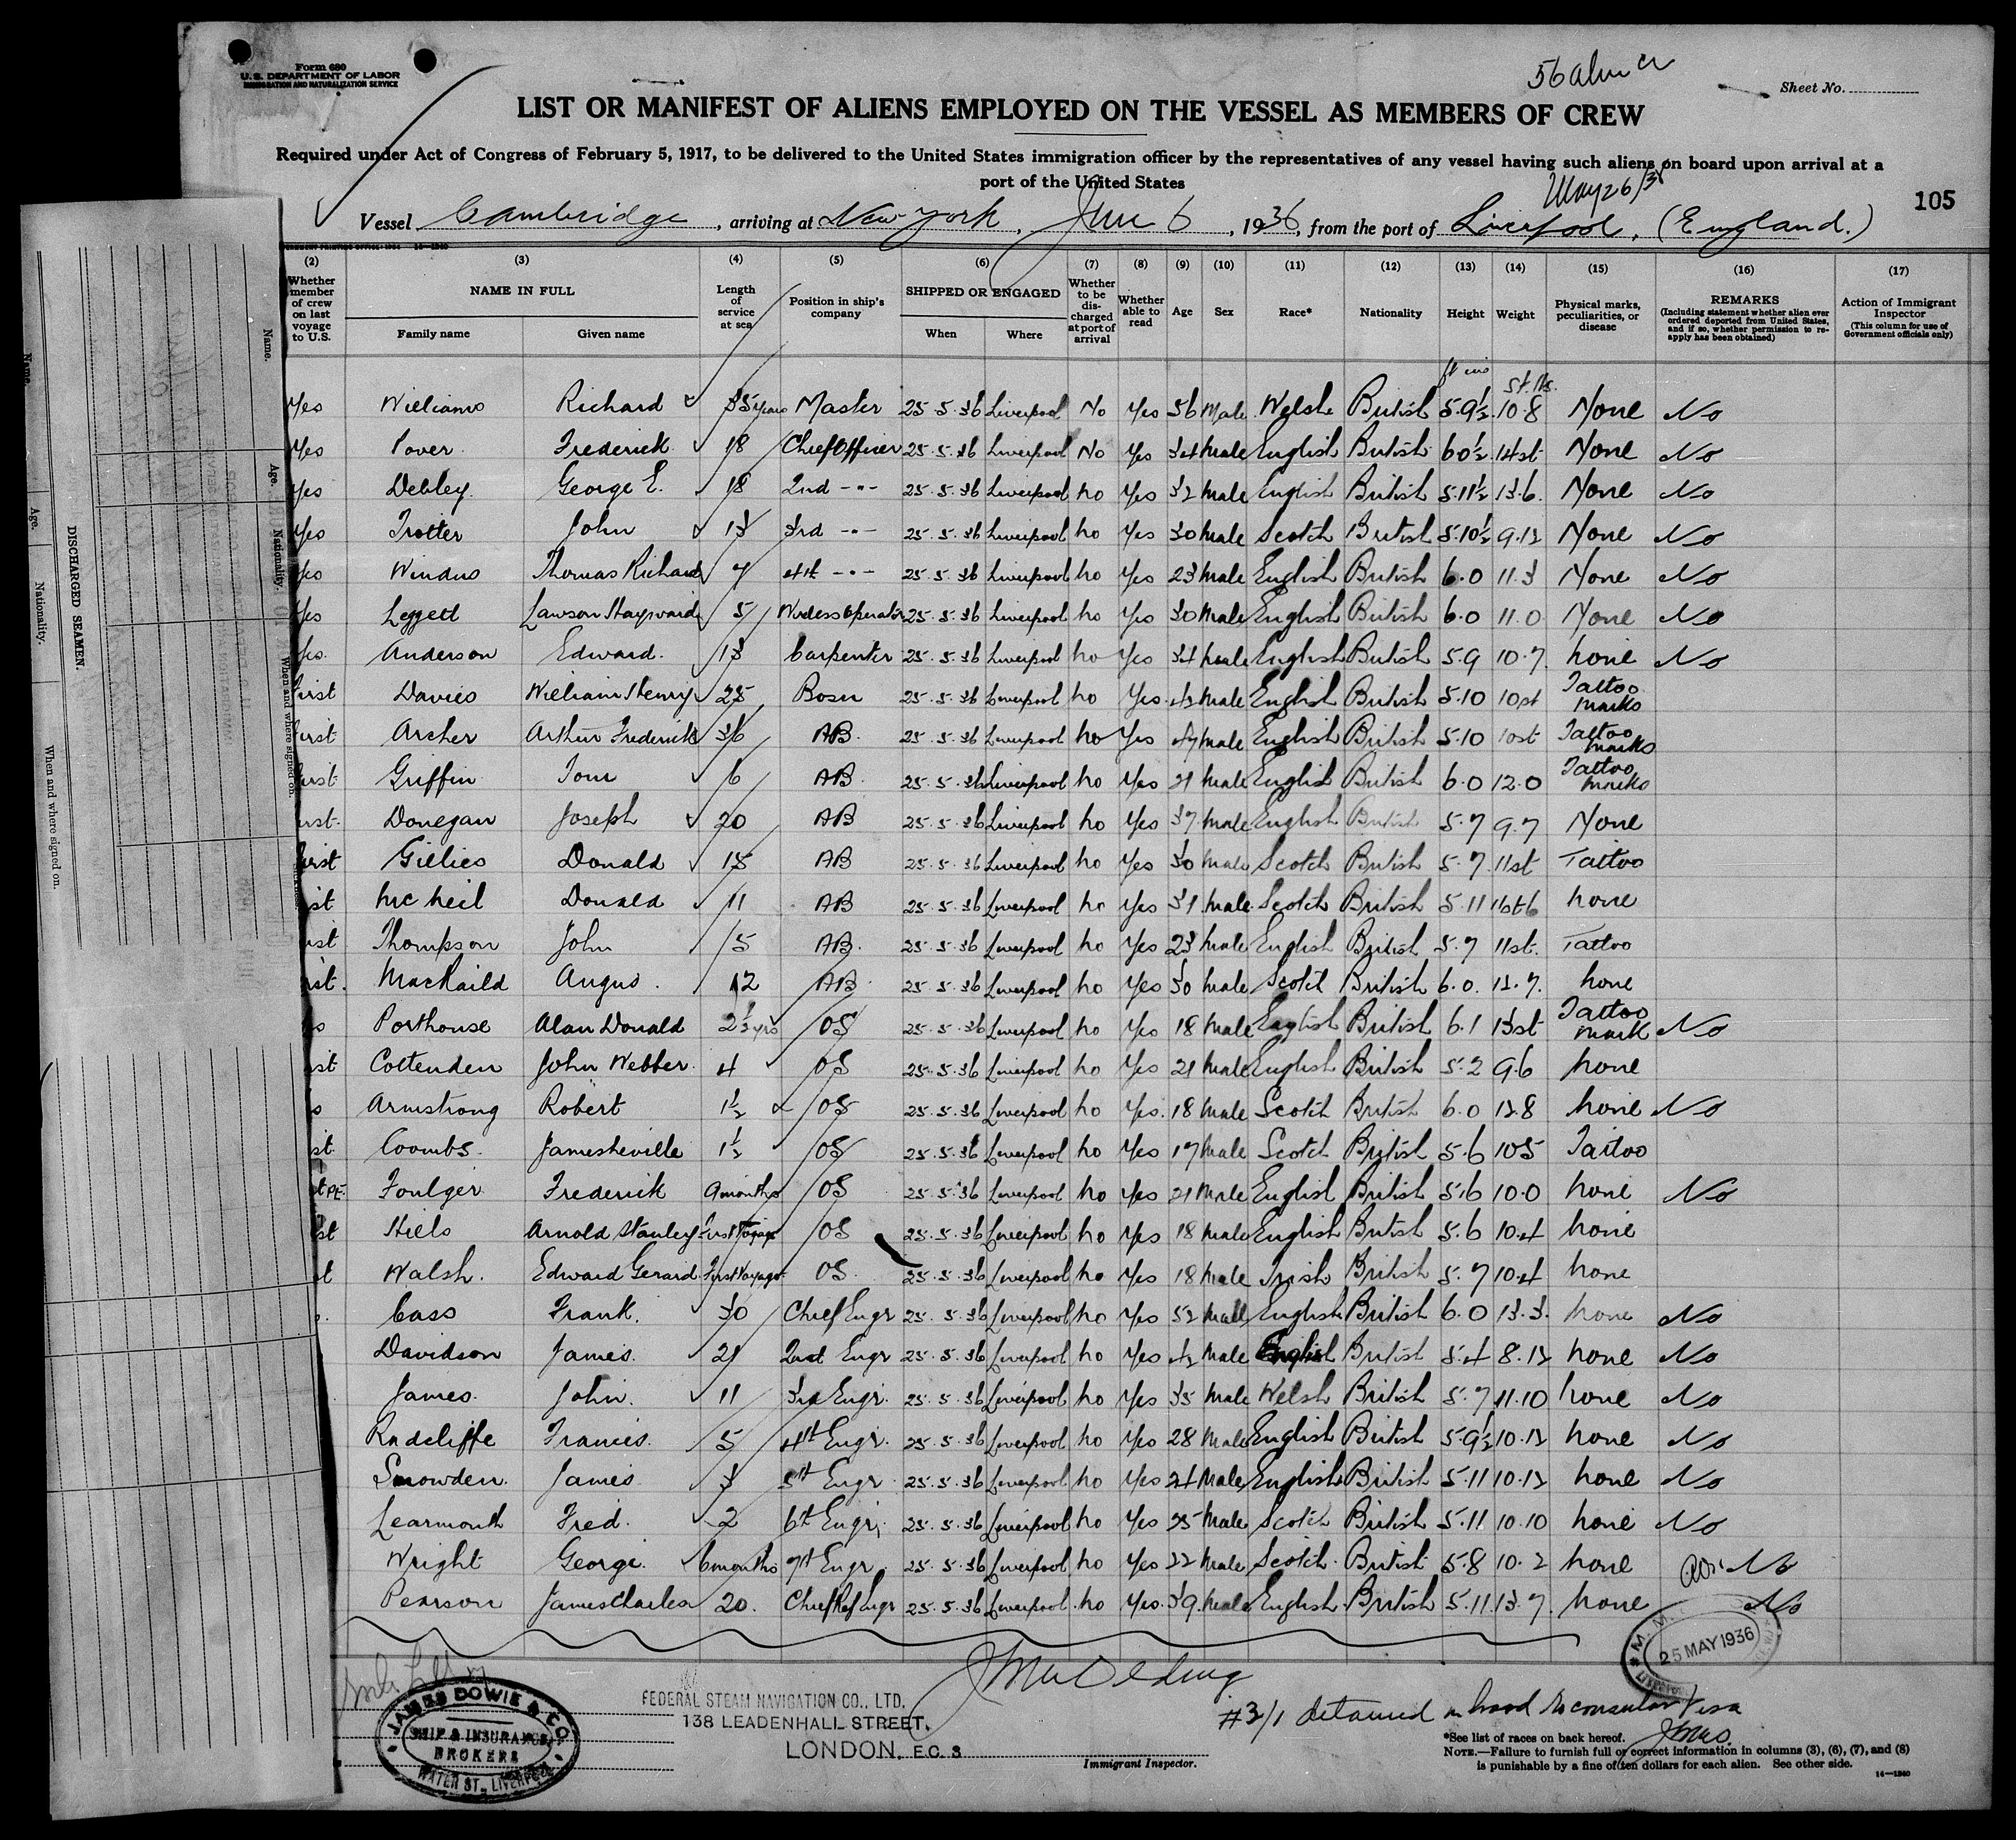 Form 680
U.S. DEPARTMENT OF LABOR
IMMIGRATION AND NATURALIZATION SERVICE
Sheet No.
LIST OR MANIFEST OF ALIENS EMPLOYED ON THE VESSEL AS MEMBERS OF CREW
Required under Act of Congress of February 5, 1917, to be delivered to the United States immigration officer by the representatives of any vessel having such aliens on board upon arrival at a
port of the United States
May 26/36
105
Vessel Cambridge, arriving at New York, June 6, 1936, from the port of Liverpool, (England.)
(2) (3) (4) (5) (6) (7) (8) (9) (10) (11) (12) (13) (14) (15) (16) (17)
Whether member of crew on last voyage to U.S. NAME IN FULL Family name Given name Length of service at sea Position in ship's company SHIPPED OR ENGAGED When Where Whether to be discharged at port of arrival Whether able to read Age Sex Race* Nationality Height Weight Physical marks, peculiarities, or disease REMARKS (Including statement whether alien ever ordered deported from United States, and if so, whether permission to reapply has been obtained) Action of Immigrant Inspector (This column for use of Government officials only)
ft ins st. lbs.
Yes Williams Richard 35 years Master 25.5.36 Liverpool No Yes 56 Male Welsh British 5.9½ 10.8 None No
Yes Pover Frederick 18 Chief Officer 25.5.36 Liverpool No Yes 34 Male English British 6 0½ 14st None No
Yes Debley George E. 18 2nd -"- 25.5.36 Liverpool no Yes 32 Male English British 5.11½ 13.6 None No
Yes Trotter John 13 3rd -"- 25.5.36 Liverpool no Yes 30 Male Scotch British 5.10½ 9.12 None No
Yes Windus Thomas Richard 7 4th -"- 25.5.36 Liverpool no Yes 23 Male English British 6.0 11.3 None No
Yes Leggett Lawson Hayward 5 Wireless Operator 25.5.36 Liverpool no Yes 30 Male English British 6.0 11.0 None No
Yes Anderson Edward 13 Carpenter 25.5.36 Liverpool no Yes 34 male English British 5.9 10.7 none No
First Davies William Henry 25 Bosn 25.5.36 Liverpool no Yes Male English British 5.10 10st Tattoo marks
First Archer Arthur Frederick 36 AB 25.5.36 Liverpool no Yes 47 male English British 5.10 10st Tattoo marks
First Griffin Tom 6 AB 25.5.36 Liverpool no Yes 21 Male English British 6.0 12.0 Tattoo marks
Donegan Joseph 20 AB 25.5.36 Liverpool no Yes 37 Male English British 5.7 9.7 None
First Gillies Donald 15 AB 25.5.36 Liverpool no Yes 30 Male Scotch British 5.7 11st Tattoo
McNeil Donald 11 AB 25.5.36 Liverpool no Yes 31 male Scotch British 5.11 11st6 none
Thompson John 5 AB. 25.5.36 Liverpool no Yes 23 male English British 5.7 11st. Tattoo
MacKaild Angus 12 AB 25.5.36 Liverpool no Yes 30 male Scotch British 6.0 12.7 none
Porthouse Alan Donald 2½ yrs OS 25.5.36 Liverpool no Yes 18 Male English British 6.1 13st Tattoo mark No
Cottenden John Webber 4 OS 25.5.36 Liverpool no Yes 21 Male English British 5.2 9.6 none
Armstrong Robert 1½ OS 25.5.36 Liverpool no Yes. 18 Male Scotch British 6.0 12.8 none No
Coombs James Neville 1½ OS 25.5.36 Liverpool no Yes 17 Male Scotch British 5.6 10 5 Tattoo
Foulger Frederick 9 months OS 25.5.36 Liverpool no Yes 21 Male English British 5.6 10.0 none No
Hiels Arnold Stanley First Voyage OS 25.5.36 Liverpool no Yes 18 Male English British 5.6 10.4 none
Walsh. Edward Gerard First Voyage OS. 25.5.36 Liverpool no Yes 18 Male Irish British 5.7 10.4 none
Cass Frank. 30 Chief Engr 25.5.36 Liverpool no Yes 52 Male English British 6.0 13.3. none No
Davidson James. 21 2nd Engr 25.5.36 Liverpool no Yes Male English British 5.4 8.12 none No
James John. 11 3rd Engr. 25.5.36 Liverpool no Yes 35 Male Welsh British 5.7 11.10 none No
Radcliffe Francis. 5 4th Engr. 25.5.36 Liverpool no Yes 28 Male English British 5.9½ 10.12 none No
Snowden James 3 5th Engr 25.5.36 Liverpool no Yes 24 Male English British 5.11 10.12 none No
Learmonth Fred. 2 6th Engr. 25.5.36 Liverpool no Yes 25 Male Scotch British 5.11 10.10 none No
Wright George. 6 months 7th Engr. 25.5.36 Liverpool no Yes 22 Male Scotch British 5.8 10.2 none No
Pearson James Charles 20. Chief Ref Engr 25.5.36 Liverpool no Yes. 39 Male English British 5.11 13.7 none No
25 MAY 1936
LIVERPOOL
JAMES DOWIE & CO.
SHIP & INSURANCE
BROKERS
WATER ST., LIVERPOOL
FEDERAL STEAM NAVIGATION CO., LTD.
138 LEADENHALL STREET,
LONDON, E.C. 3
Immigrant Inspector.
#3/1 detained on board no consular visa
*See list of races on back hereof.
NOTE.—Failure to furnish full or correct information in columns (3), (6), (7), and (8)
is punishable by a fine of ten dollars for each alien. See other side.
14—1240
DISCHARGED SEAMEN.
Name.
Age.
Nationality.
When and where signed on.
Name.
Age.
Nationality.
When and where signed on.